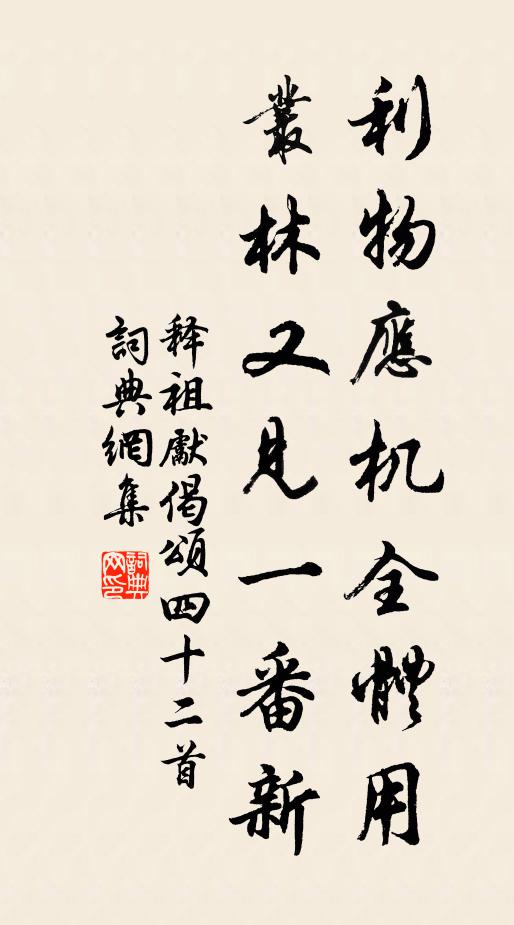 利物應机全體用
叢林又見一番新
释祖獻偈頌四十二首
詞典網集
詞典网印